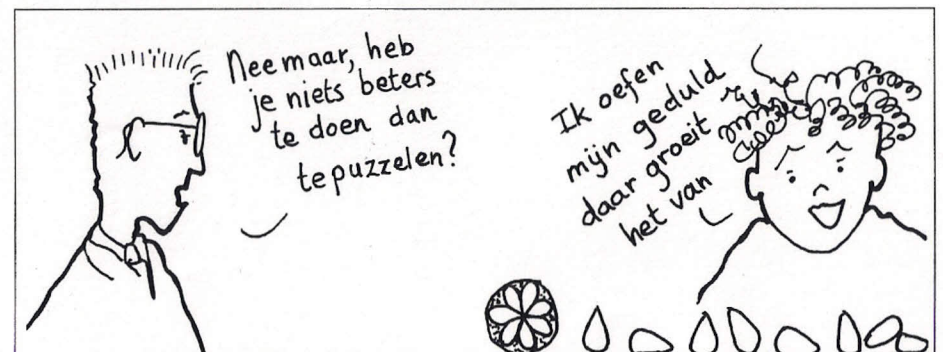 Nee maar, heb
je niets beters
te doen dan
te puzzelen?
Ik oefen
mijn geduld
daar groeit
het van